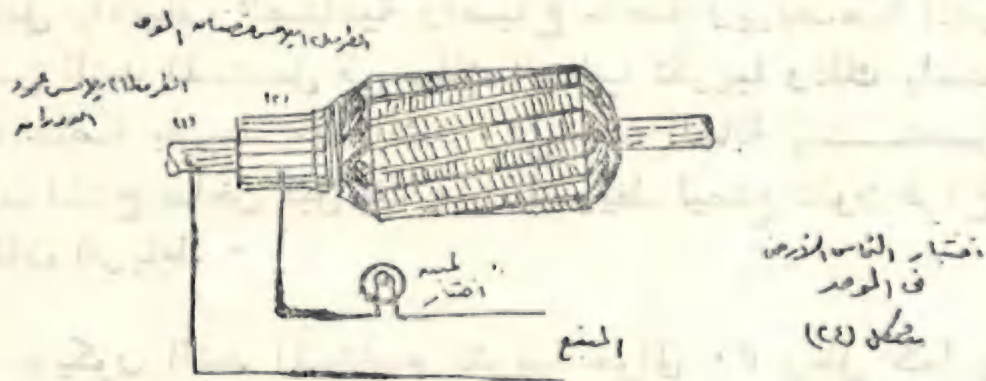 الطرف (٢) يلامس قضبان الموحد
الطرف (١) يلامس عمود
الدوران
(١)
(٢)
لمبة
اختبار
المنبع
اختبار التماس الأرضى
فى الموحد
شكل (٢٤)